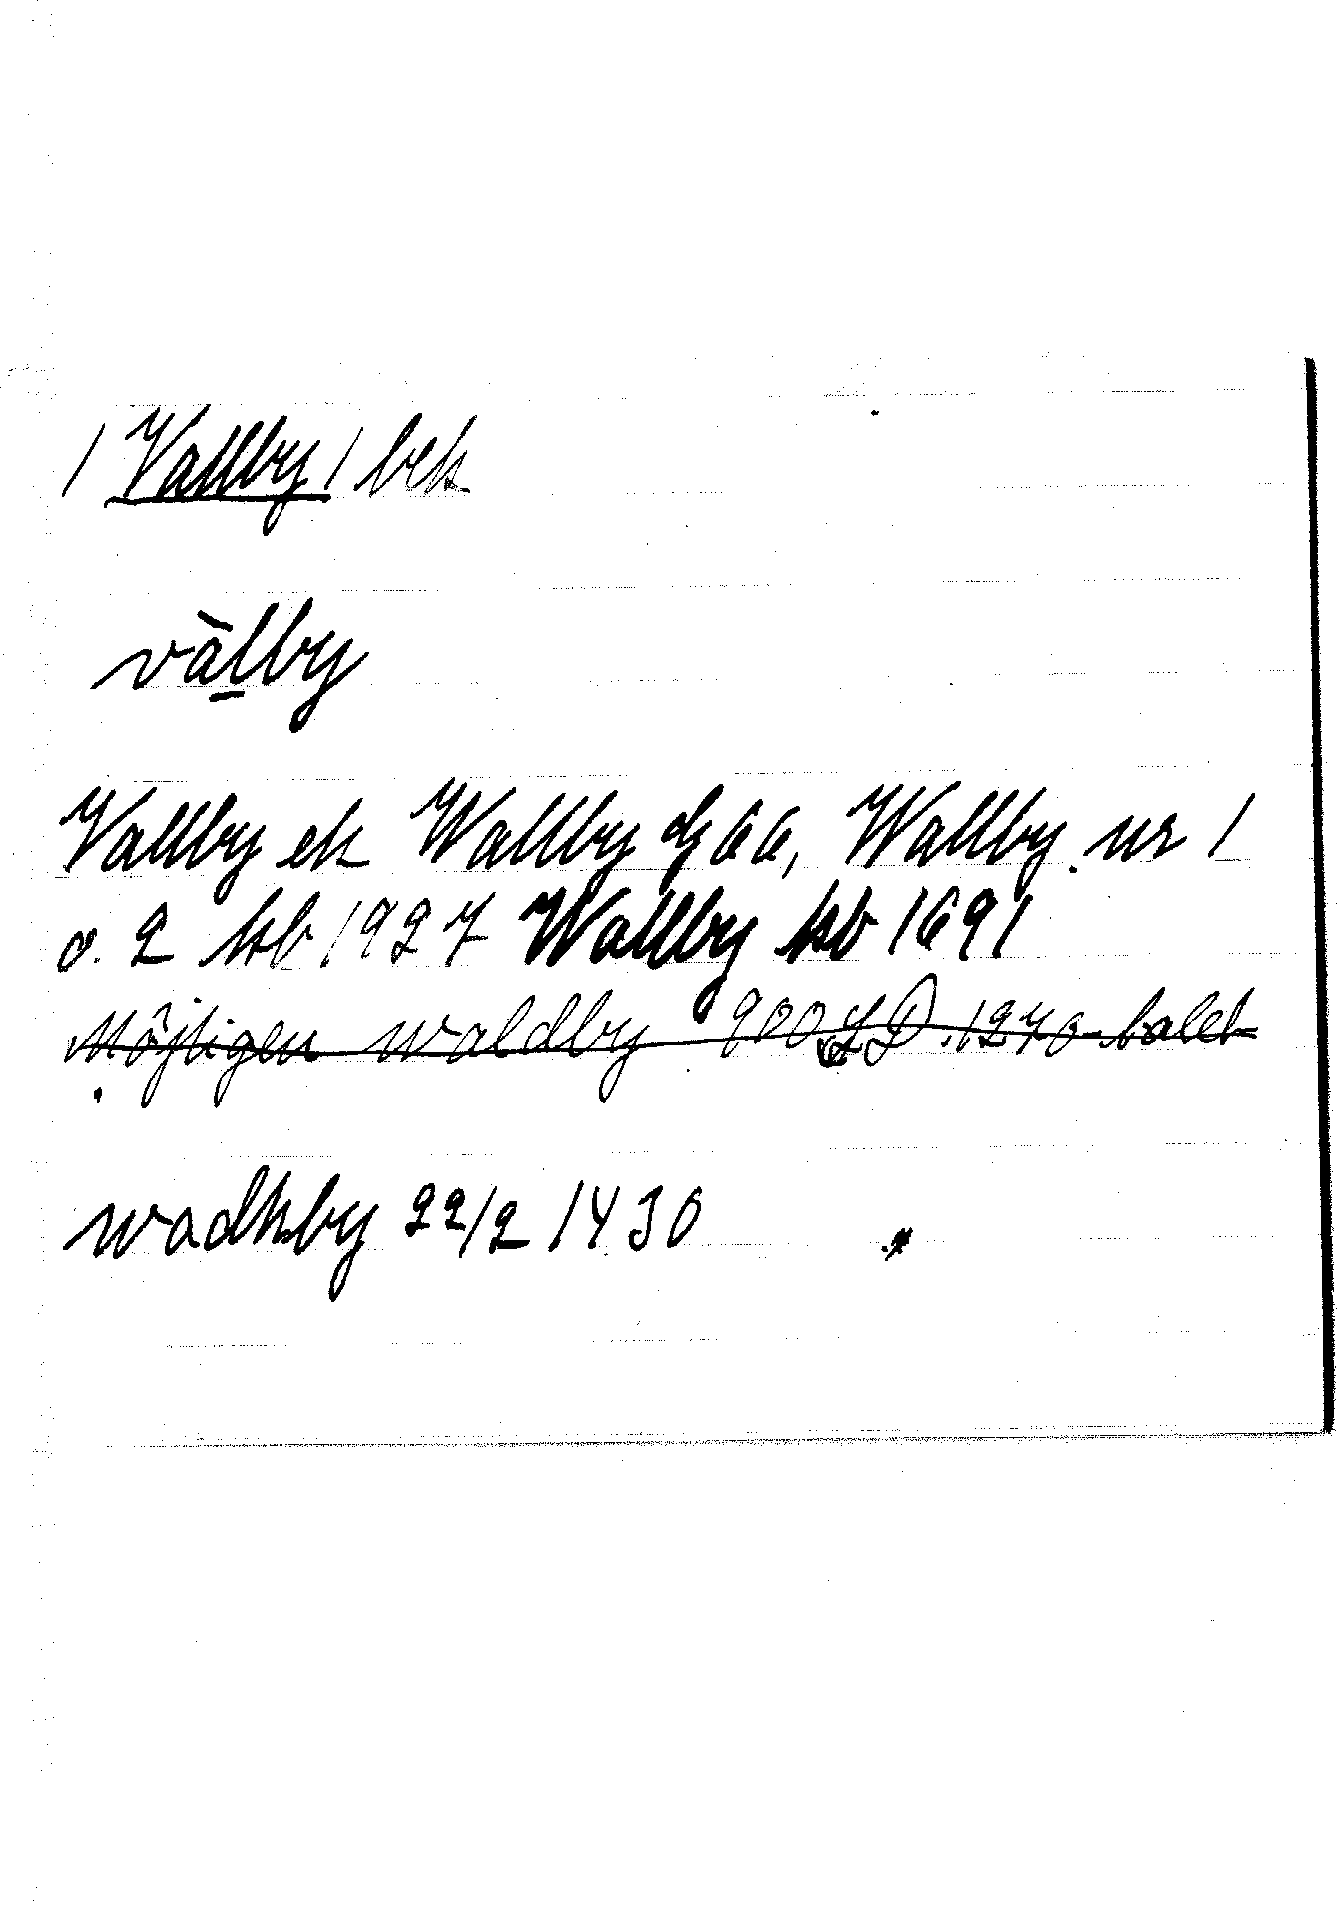 / Vallby / bek
vàlby
Vallby ek Wallby gaa, Wallby nr 1
o. 2 kb 1927 Wallby kb 1691
Möjligen waldby 900 SD. 1270-talet
wadhby 22/2 1430